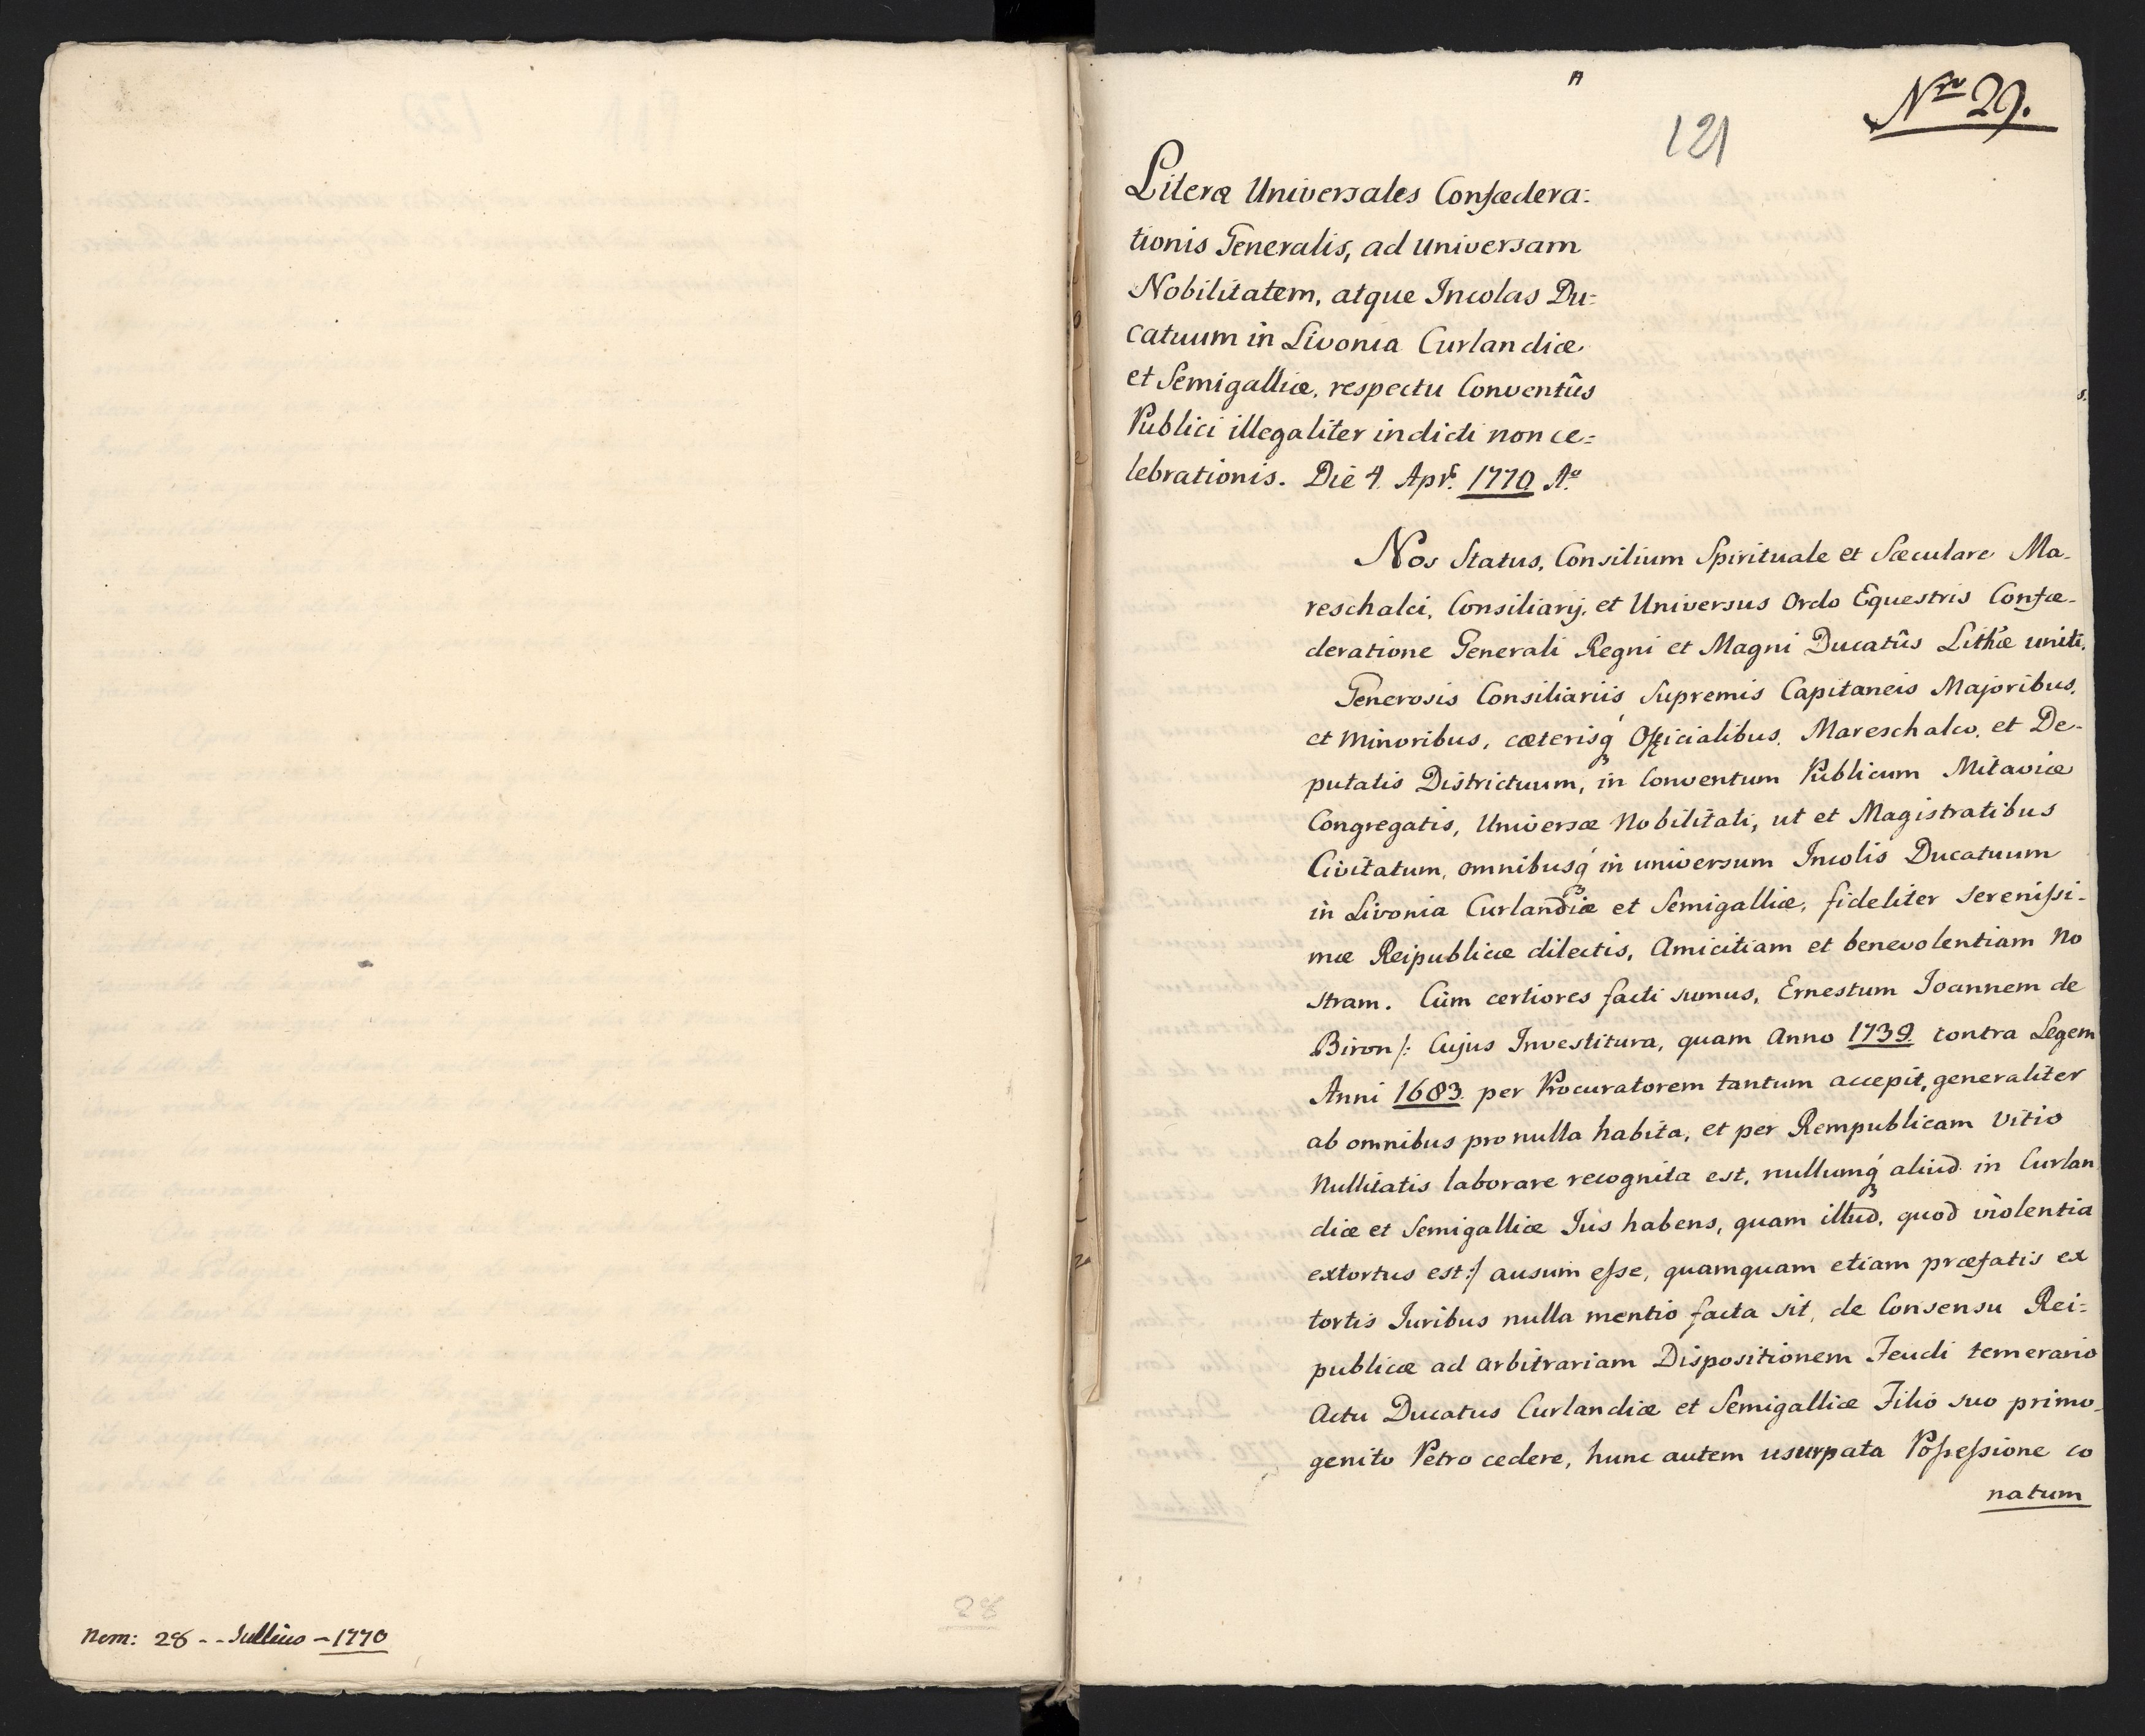 Nem: 28 - - Jullius - 1770
Nro 29.
121
Literæ Universales Confædera=
tionis Generalis, ad Universam
Nobilitatem, atque Incolas Du=
catuum in Livonia Curlandiæ
et Semigalliæ, respectu Conventûs
Publici illegaliter indicti non ce=
lebrationis. Die 4. Apr. 1770 Ao
Nos Status, Consilium Spirituale et Sæculare Ma-
reschalci, Consiliarij, et Universus Ordo Equestris Confæ-
deratione Generali Regni et Magni Ducatûs Lithæ uniti.
Generosis Consiliariis Supremis Capitaneis Majoribus,
et Minoribus, cæterisq́ Officialibus, Mareschalco, et De-
putatis Districtuum, in Conventum Publicum Mitaviæ
Congregatis, Universæ Nobilitati, ut et Magistratibus
Civitatum, omnibusq́ in universum Incolis Ducatuum
in Livonia Curlandiæ et Semigalliæ, fideliter Serenissi-
mæ Reipublicæ dilectis, Amicitiam et benevolentiam No
stram. Cùm certiores facti sumus, Ernestum Joannem de
Biron /: Cujus Investitura, quam Anno 1739. contra Legem
Anni 1683. per Procuratorem tantum accepit, generaliter
ab omnibus pro nulla habita, et per Rempublicam Vitio
Nullitatis laborare recognita est, nullumq́ aliud in Curlan
diæ et Semigalliæ Jus habens, quam illud, quod violentia
extortus est :/ ausum esse, quamquam etiam præfatis ex
tortis Juribus nulla mentio facta sit, de Consensu Rei=
publicæ ad arbitrariam Dispositionem Feudi temerario
Actu Ducatus Curlandiæ et Semigalliæ Filio suo primo-
genito Petro cedere, hunc autem usurpata Possessione co
natum